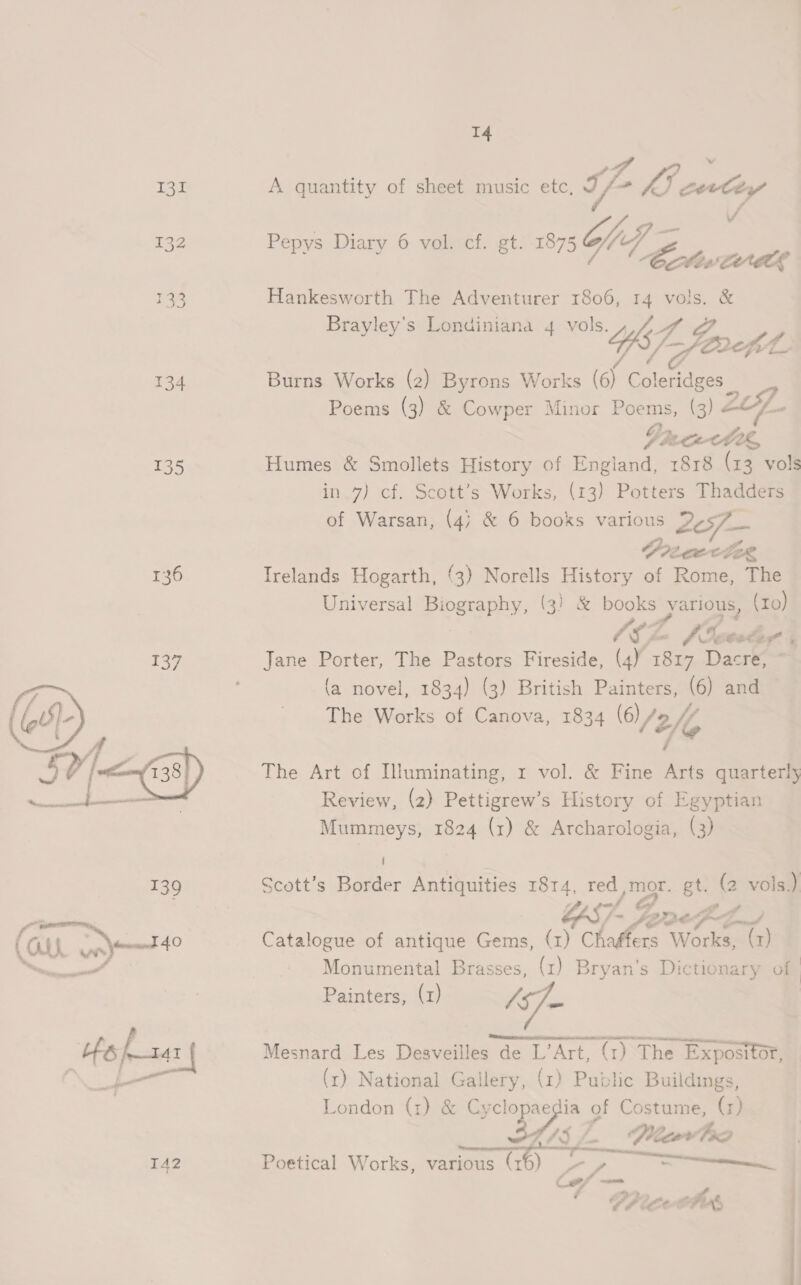 14
131 A quantity of sheet music etc,
132 Pepys Diary 6 vol. cf. gt. 1875
133 Hankesworth The Adventurer 1806, 14 vols. &
Brayley's Londiniana 4 vols.
134 Burns Works (2) Byrons Works (6) Coleridges
Poems (3) & Cowper Minor Poems, (3)
135 Humes & Smollets History of England, 1818 (13 vols
in 7) cf. Scott's Works, (13) Potters Thadders
of Warsan, (4) & 6 books various
136 Irelands Hogarth, (3) Norells History of Rome, The
Universal Biography, (3) & books various, (10)
137 Jane Porter, The Pastors Fireside, (4) 1817 Dacre,
(a novel, 1834) (3) British Painters, (6) and
The Works of Canova, 1834 (6)
138 The Art of Illuminating, 1 vol. & Fine Arts quarterly
Review, (2) Pettigrew's History of Egyptian
Mummeys, 1824 (1) & Archarologia, (3)
139 Scott's Border Antiquities 1814, red mor. gt. (2 vols.)
140 Catalogue of antique Gems, (1) Chaffers Works, (1)
Monumental Brasses, (1) Bryan's Dictionary of
Painters, (1) 15/-
141 Mesnard Les Desveilles de L'Art, (1) The Expositor,
(1) National Gallery, (1) Public Buildings,
London (1) & Cyclopaedia of Costume, (1)
142 Poetical Works, various (16)